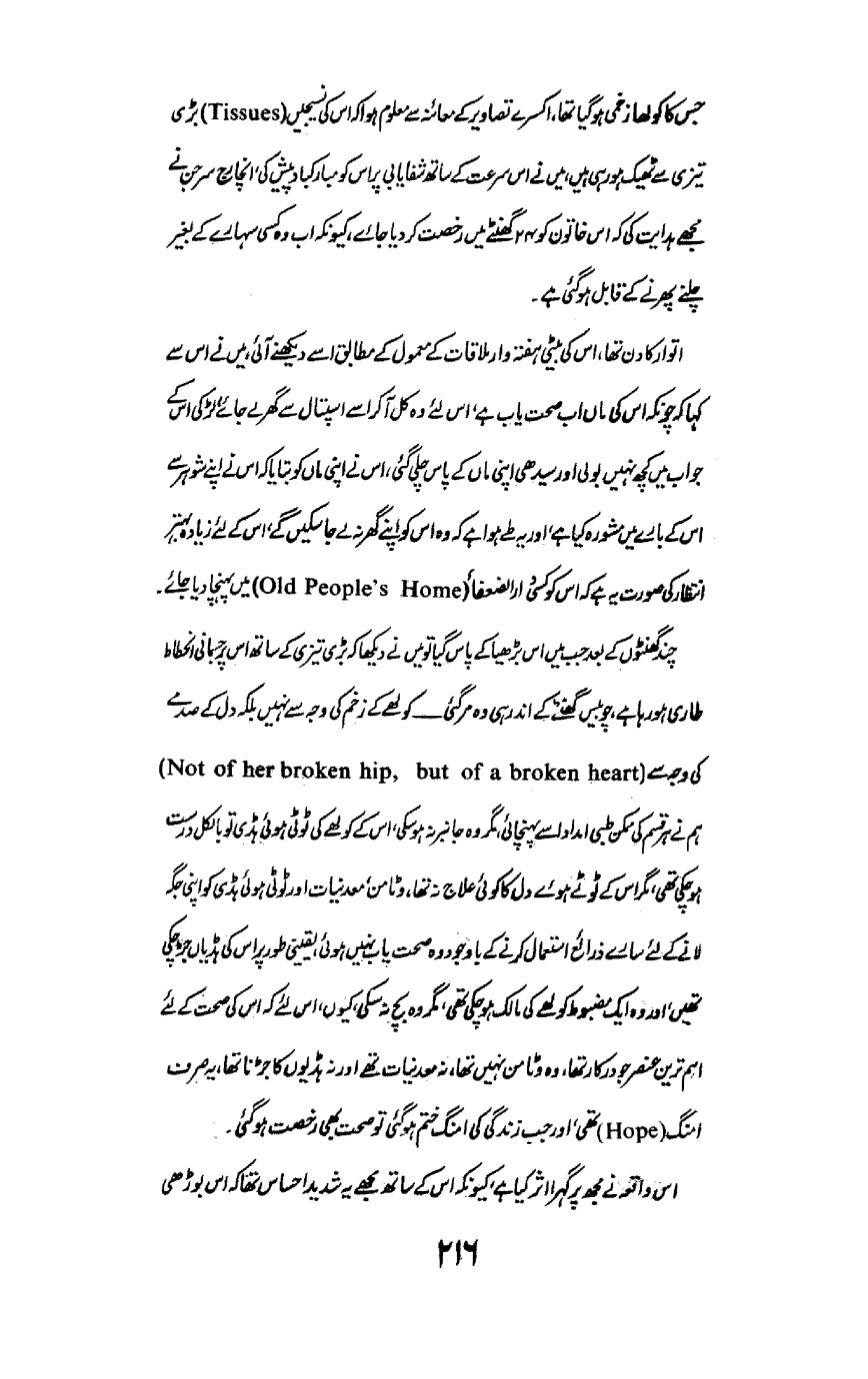 جس کا کولھا زخمی ہوگیا تھا، اکسرے تصاویر کے معائنہ سے معلوم ہوا کہ اس کی نسیجیں (Tissues) بڑی
تیزی سے ٹھیک ہورہی ہیں، میں نے اس سرعت کے ساتھ شفایابی پر اس کو مبارکباد پیش کی، انچارج سرجن نے
مجھے ہدایت کی کہ اس خاتون کو ۲۴ گھنٹے میں رخصت کردیا جائے، کیونکہ اب وہ کسی سہارے کے بغیر
چلنے پھرنے کے قابل ہوگئی ہے۔
اتوار کا دن تھا، اس کی بیٹی ہفتہ وار ملاقات کے معمول کے مطابق اسے دیکھنے آئی، میں نے اس سے
کہا کہ چونکہ اس کی ماں اب صحت یاب ہے، اس لئے وہ کل آکر اسے اسپتال سے گھر لے جائے، لڑکی اس کے
جواب میں کچھ نہیں بولی اور سیدھی اپنی ماں کے پاس چلی گئی، اس نے اپنی ماں کو بتایا کہ اس نے اپنے شوہر سے
اس کے بارے میں مشورہ کیا ہے، اور یہ طے ہوا ہے کہ وہ اس کو اپنے گھر نہ لے جاسکیں گے، اس کے لئے زیادہ بہتر
انتظار کی صورت یہ ہے کہ اس کو کسی دارالضعفاً (Old People's Home) میں پہنچا دیا جائے۔
چند گھنٹوں کے بعد جب میں اس بڑھیا کے پاس گیا تو میں نے دیکھا کہ بڑی تیزی کے ساتھ اس پر جسمانی انحطاط
طاری ہورہا ہے، چوبیس گھنٹے کے اندر ہی وہ مرگئی ــــ کولھے کے زخم کی وجہ سے نہیں بلکہ دل کے صدمے
کی وجہ سے (Not of her broken hip, but of a broken heart)
ہم نے ہر قسم کی ممکن طبی امداد اسے پہنچائی، مگر وہ جانبر نہ ہوسکی، اس کے کولھے کی ٹوٹی ہوئی ہڈی تو بالکل درست
ہوچکی تھی، مگر اس کے ٹوٹے ہوئے دل کا کوئی علاج نہ تھا، وٹامن، معدنیات اور ٹوٹی ہوئی ہڈی کو اپنی جگہ
لانے کے لئے سارے ذرائع استعمال کرنے کے باوجود وہ صحت یاب نہیں ہوئی، یقینی طور پر اس کی ہڈیاں جڑ چکی
تھیں، اور وہ ایک مضبوط کولھے کی مالک ہوچکی تھی، مگر وہ بچ نہ سکی، کیوں، اس لئے کہ اس کی صحت کے لئے
اہم ترین عنصر جو درکار تھا، وہ وٹامن نہیں تھا، نہ معدنیات تھے اور نہ ہڈیوں کا جڑنا تھا، یہ صرف
امنگ (Hope) تھی، اور جب زندگی کی امنگ ختم ہوگئی تو صحت بھی رخصت ہوگئی۔
اس واقعہ نے مجھ پر گہرا اثر کیا ہے، کیونکہ اس کے ساتھ مجھے یہ شدید احساس تھا کہ اس بوڑھی
۲۱۶